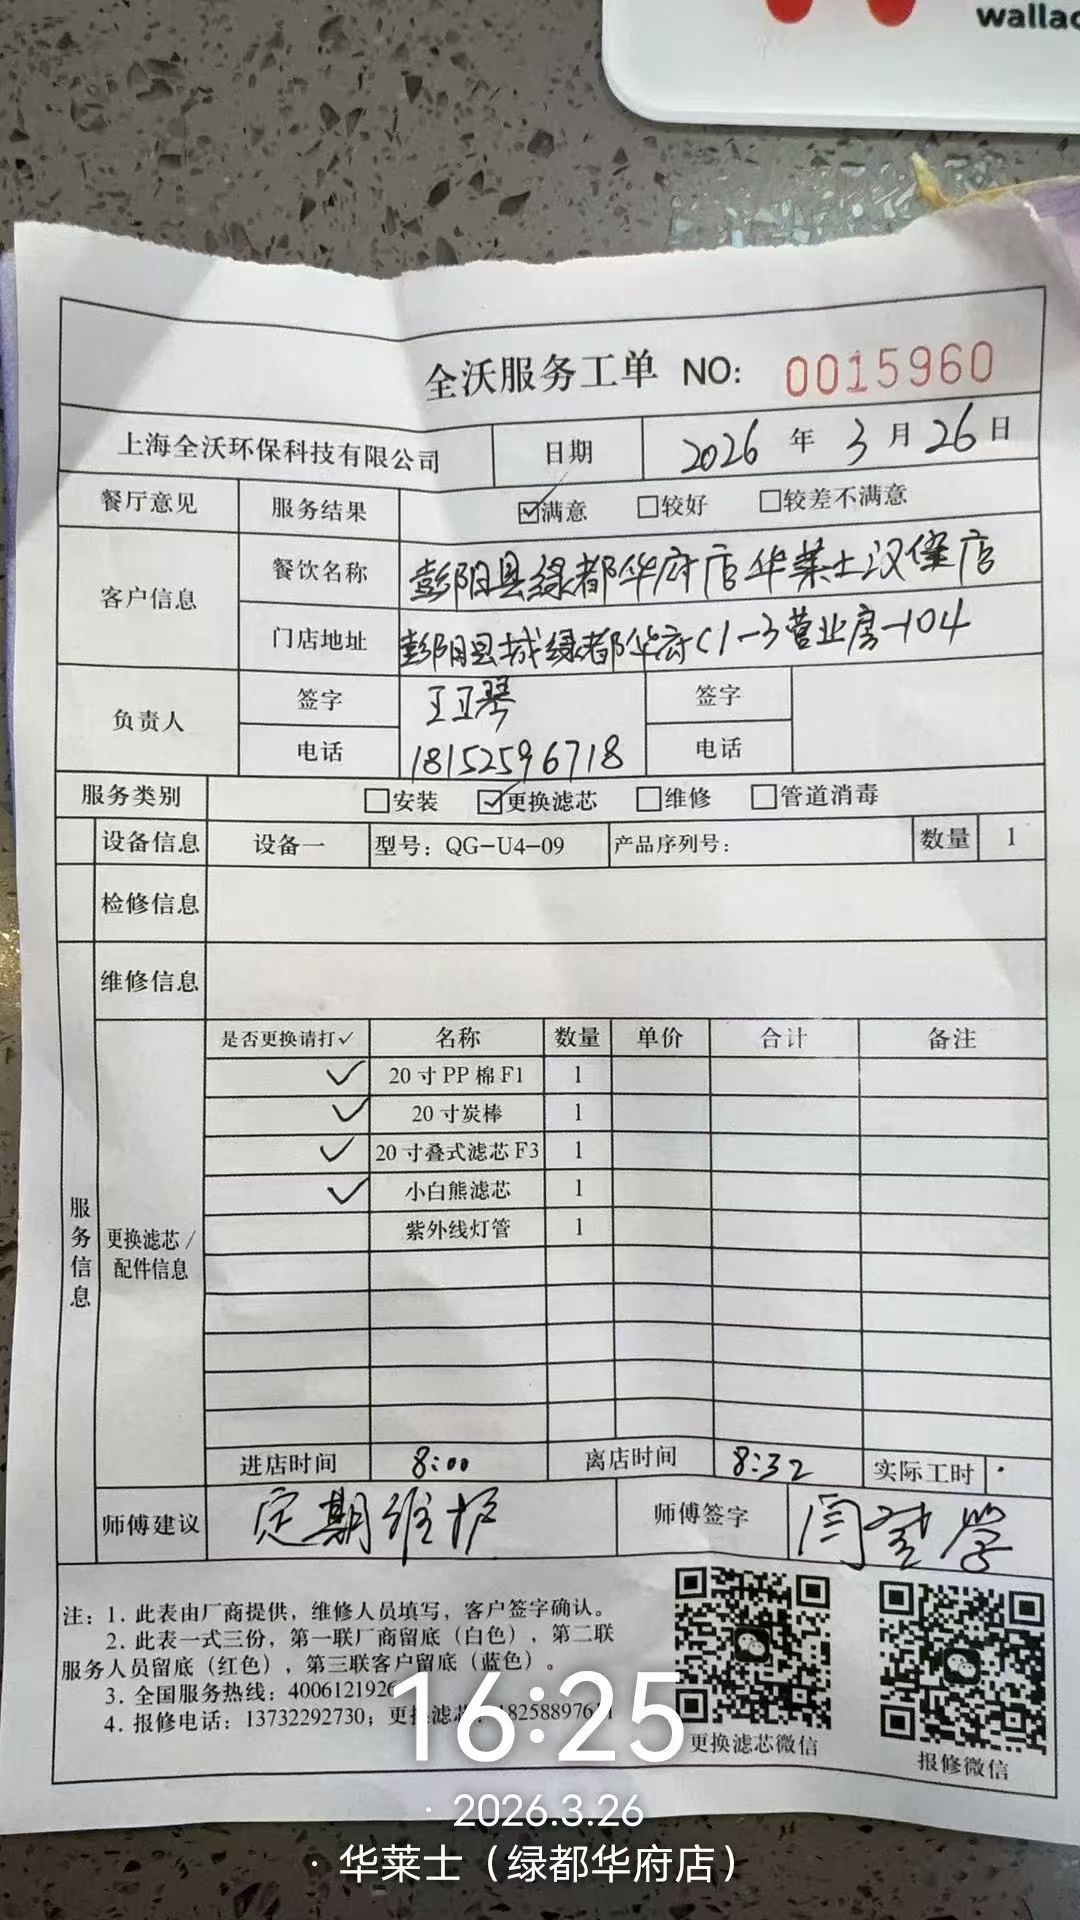 wallac
全沃服务工单 NO: 0015960
上海全沃环保科技有限公司 日期 2026 年 3 月 26 日
餐厅意见 服务结果 ☑满意 □较好 □较差不满意
客户信息 餐饮名称 彭阳县绿都华府店华莱士汉堡店
门店地址 彭阳县城绿都华府C1-3营业房-104
负责人 签字 王卫琴 签字
电话 18152596718 电话
服务类别 □安装 ☑更换滤芯 □维修 □管道消毒
设备信息 设备一 型号：QG-U4-09 产品序列号： 数量 1
检修信息
维修信息
是否更换请打✓ 名称 数量 单价 合计 备注
✓ 20寸PP棉F1 1
✓ 20寸炭棒 1
✓ 20寸叠式滤芯F3 1
✓ 小白熊滤芯 1
紫外线灯管 1
服务信息
更换滤芯/
配件信息
进店时间 8:00 离店时间 8:32 实际工时
师傅建议 定期维护 师傅签字 闫楚学
注：1. 此表由厂商提供，维修人员填写，客户签字确认。
2. 此表一式三份，第一联厂商留底（白色），第二联
服务人员留底（红色），第三联客户留底（蓝色）。
3. 全国服务热线：4006121926
4. 报修电话：13732292730；更换滤
更换滤芯微信
报修微信
16:25
· 2026.3.26
· 华莱士（绿都华府店）